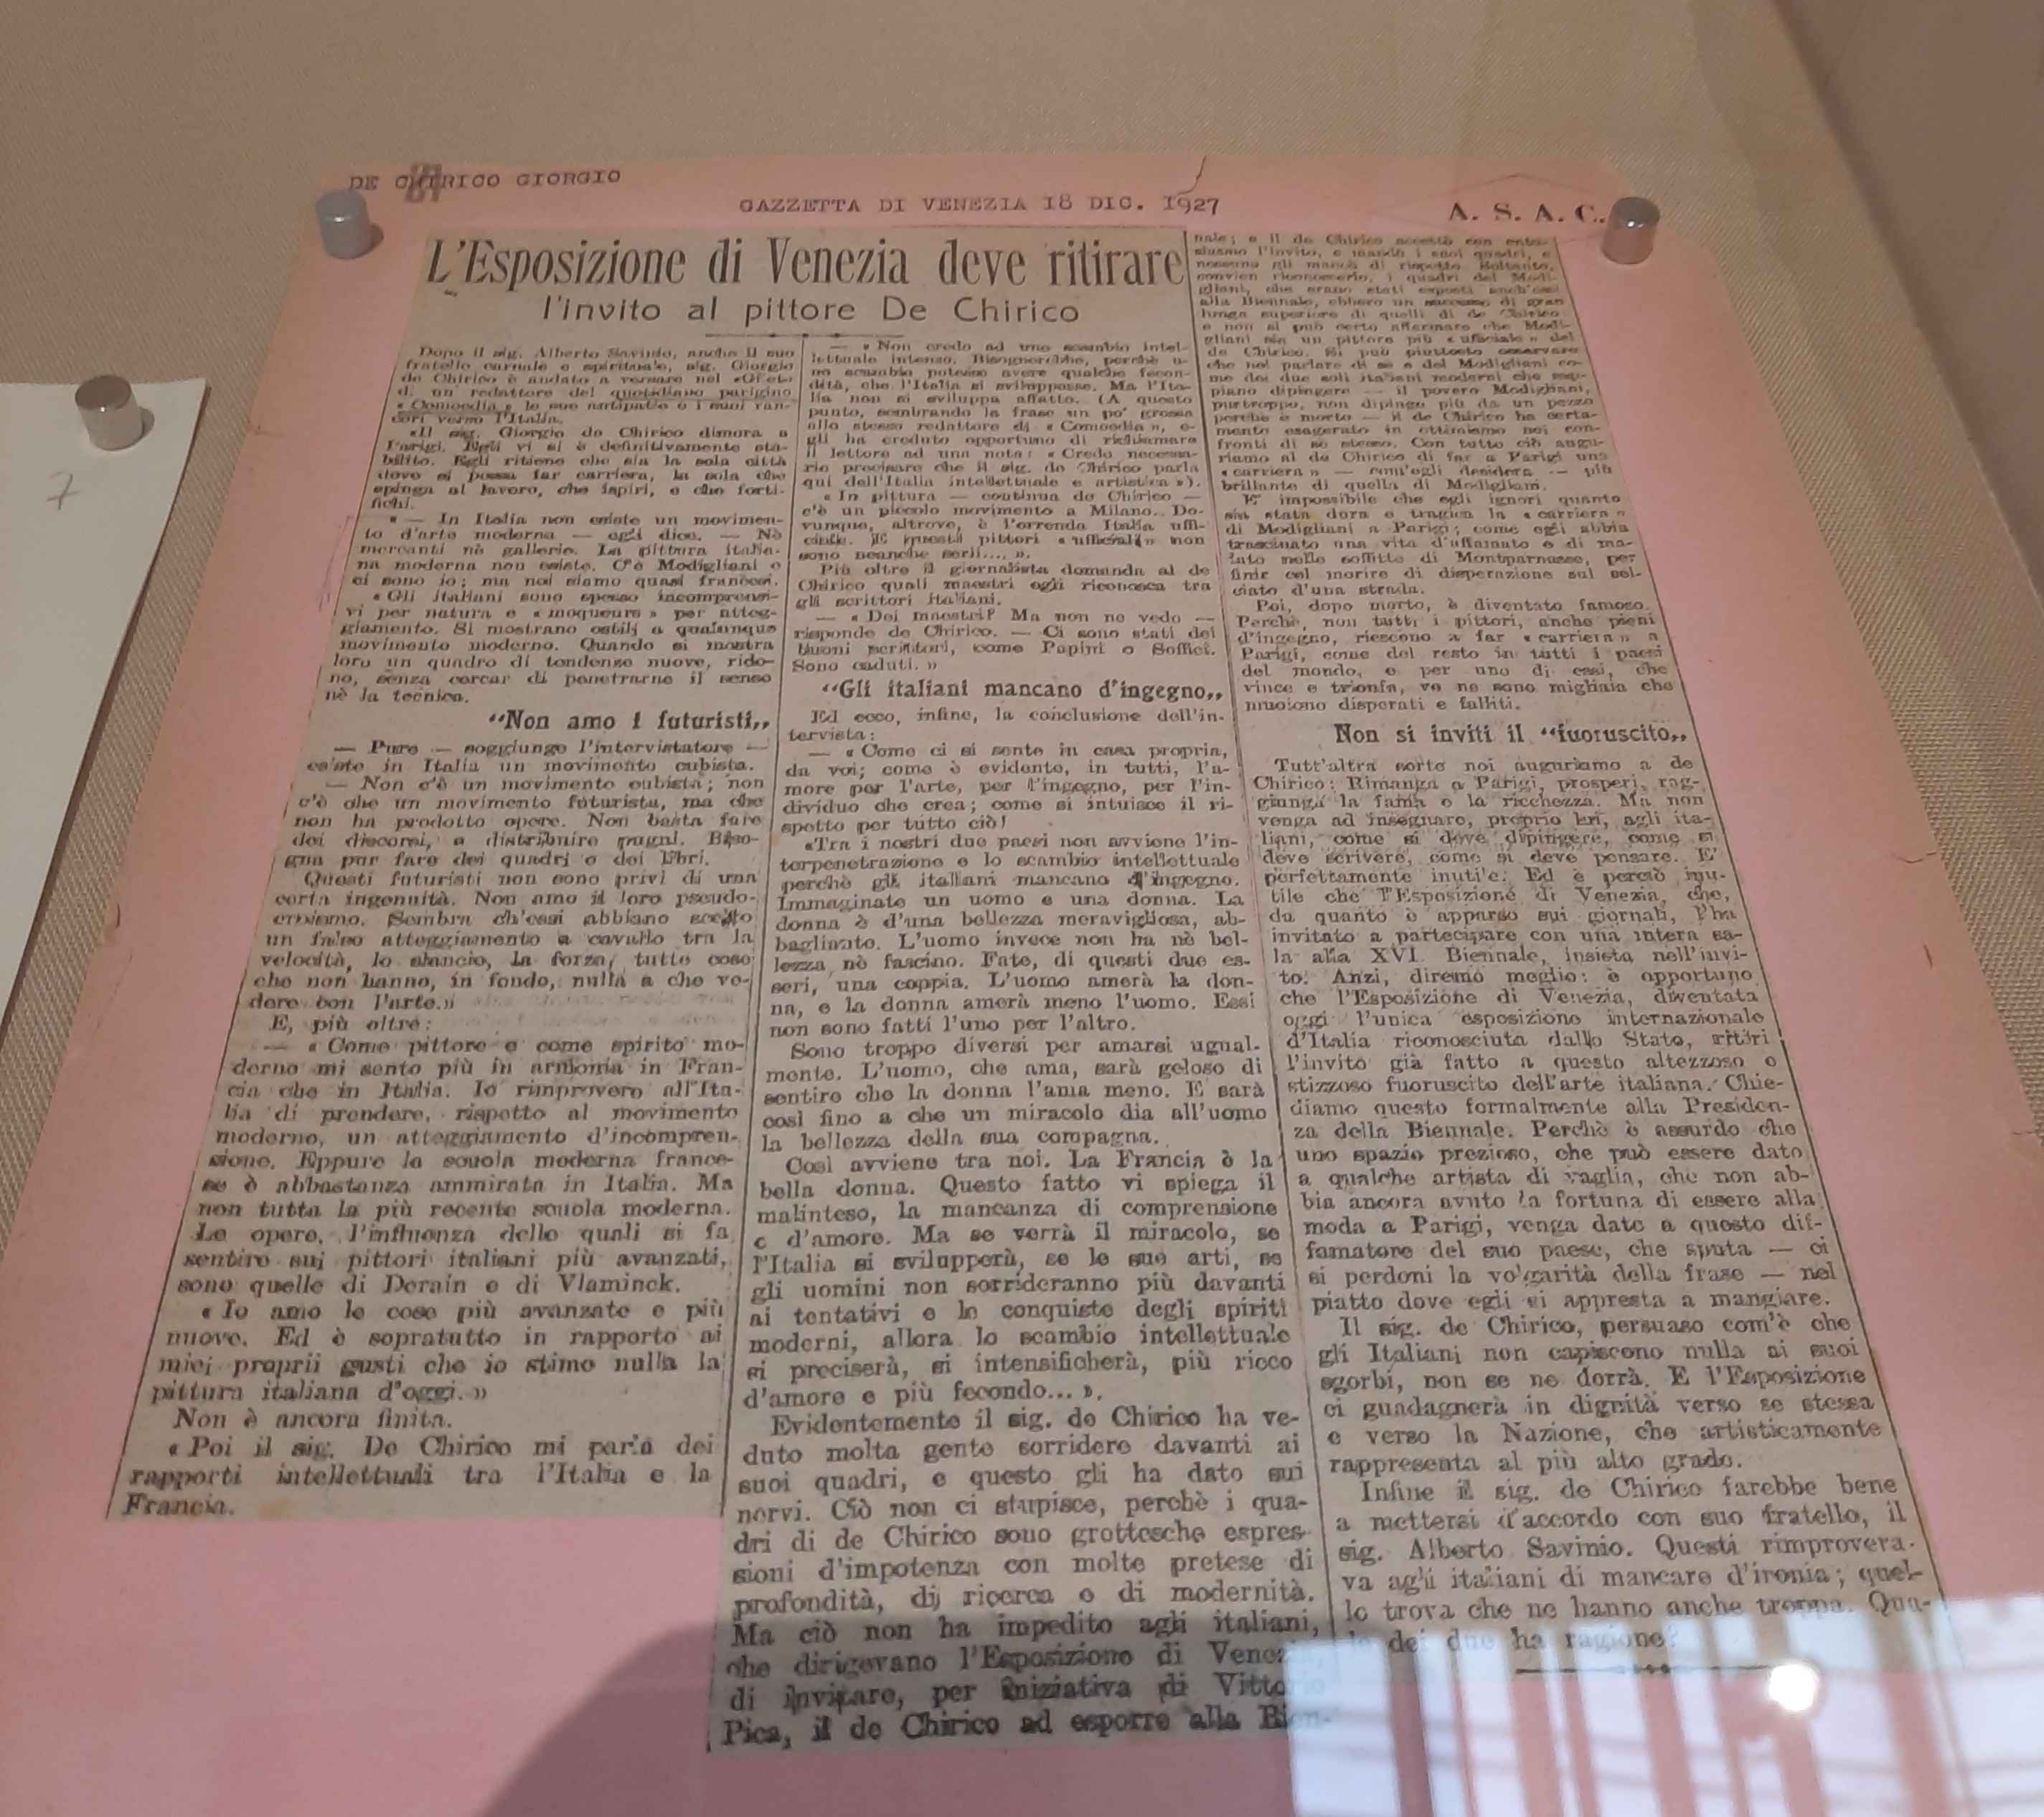 DE CHIRICO GIORGIO
GAZZETTA DI VENEZIA 18 DIC. 1927
A. S. A. C.
7
L'Esposizione di Venezia deve ritirare
l'invito al pittore De Chirico
Dopo il sig. Alberto Savinio, anche il suo
fratello carnale e spirituale, sig. Giorgio
de Chirico è andato a versare nel
di un redattore del quotidiano parigino
« Comoedia » le sue antipatie e i suoi ran-
cori verso l'Italia.
«Il sig. Giorgio de Chirico dimora a
Parigi. Egli vi si è definitivamente sta-
bilito. Egli ritiene che sia la sola città
dove si possa far carriera, la sola che
spinga al lavoro, che ispiri, e che forti-
fichi.
« — In Italia non esiste un movimen-
to d'arte moderna — egli dice. — Nè
mercanti nè gallerie. La pittura italia-
na moderna non esiste. C'è Modigliani e
ci sono io; ma noi siamo quasi francesi.
« Gli italiani sono spesso incomprensi-
vi per natura e « moqueurs » per atteg-
giamento. Si mostrano ostili a qualunque
movimento moderno. Quando si mostra
loro un quadro di tendenze nuove, rido-
no, senza cercar di penetrarne il senso
nè la tecnica.
“Non amo i futuristi„
— Pure — soggiunge l'intervistatore —
esiste in Italia un movimento cubista.
— Non c'è un movimento cubista; non
c'è che un movimento futurista, ma che
non ha prodotto opere. Non basta fare
dei discorsi, e distribuire pugni. Biso-
gna pur fare dei quadri o dei libri.
Questi futuristi non sono privi di una
certa ingenuità. Non amo il loro pseudo-
eroismo. Sembra ch'essi abbiano scelto
un falso atteggiamento a cavallo tra la
velocità, lo slancio, la forza, tutte cose
che non hanno, in fondo, nulla a che ve-
dere con l'arte.»
E, più oltre:
— « Come pittore e come spirito mo-
derno mi sento più in armonia in Fran-
cia che in Italia. Io rimprovero all'Ita-
lia di prendere, rispetto al movimento
moderno, un atteggiamento d'incompren-
sione. Eppure la scuola moderna france-
se è abbastanza ammirata in Italia. Ma
non tutta la più recente scuola moderna.
Le opere, l'influenza delle quali si fa
sentire sui pittori italiani più avanzati,
sono quelle di Derain e di Vlaminck.
« Io amo le cose più avanzate e più
nuove. Ed è sopratutto in rapporto ai
miei proprii gusti che io stimo nulla la
pittura italiana d'oggi. »
Non è ancora finita.
« Poi il sig. De Chirico mi parla dei
rapporti intellettuali tra l'Italia e la
Francia.
— « Non credo ad uno scambio intel-
lettuale intenso. Bisognerebbe, perchè u-
no scambio potesse avere qualche fecon-
dità, che l'Italia si sviluppasse. Ma l'Ita-
lia non si sviluppa affatto. (A questo
punto, sembrando la frase un po' grossa
allo stesso redattore di « Comoedia », e-
gli ha creduto opportuno di richiamare
il lettore ad una nota: « Credo necessa-
rio precisare che il sig. de Chirico parla
qui dell'Italia intellettuale e artistica »).
« In pittura — continua de Chirico —
c'è un piccolo movimento a Milano. Do-
vunque, altrove, è l'orrenda Italia uffi-
ciale. E questi pittori « ufficiali » non
sono neanche serii.... ».
Più oltre il giornalista domanda al de
Chirico quali maestri egli riconosca tra
gli scrittori italiani.
— « Dei maestri? Ma non ne vedo —
risponde de Chirico. — Ci sono stati dei
buoni scrittori, come Papini o Soffici.
Sono caduti. »
“Gli italiani mancano d'ingegno„
Ed ecco, infine, la conclusione dell'in-
tervista:
— « Come ci si sente in casa propria,
da voi; come è evidente, in tutti, l'a-
more per l'arte, per l'ingegno, per l'in-
dividuo che crea; come si intuisce il ri-
spetto per tutto ciò!
«Tra i nostri due paesi non avviene l'in-
terpenetrazione e lo scambio intellettuale
perchè gli italiani mancano d'ingegno.
Immaginate un uomo e una donna. La
donna è d'una bellezza meravigliosa, ab-
bagliante. L'uomo invece non ha nè bel-
lezza nè fascino. Fate, di questi due es-
seri, una coppia. L'uomo amerà la don-
na, e la donna amerà meno l'uomo. Essi
non sono fatti l'uno per l'altro.
Sono troppo diversi per amarsi ugual-
mente. L'uomo, che ama, sarà geloso di
sentire che la donna l'ama meno. E sarà
così fino a che un miracolo dia all'uomo
la bellezza della sua compagna.
Così avviene tra noi. La Francia è la
bella donna. Questo fatto vi spiega il
malinteso, la mancanza di comprensione
e d'amore. Ma se verrà il miracolo, se
l'Italia si svilupperà, se le sue arti, se
gli uomini non sorrideranno più davanti
ai tentativi e le conquiste degli spiriti
moderni, allora lo scambio intellettuale
si preciserà, si intensificherà, più ricco
d'amore e più fecondo... ».
Evidentemente il sig. de Chirico ha ve-
duto molta gente sorridere davanti ai
suoi quadri, e questo gli ha dato sui
nervi. Ciò non ci stupisce, perchè i qua-
dri di de Chirico sono grottesche espres-
sioni d'impotenza con molte pretese di
profondità, di ricerca e di modernità.
Ma ciò non ha impedito agli italiani,
che dirigevano l'Esposizione di Venezia,
di invitare, per iniziativa di Vittorio
Pica, il de Chirico ad esporre alla Bien-
nale; e il de Chirico accettò con entu-
siasmo l'invito, e mandò i suoi quadri, e
nessuno gli mancò di rispetto. Soltanto,
convien riconoscerlo, i quadri del Modi-
gliani, che erano stati esposti anch'essi
alla Biennale, ebbero un successo di gran
lunga superiore di quelli di de Chirico
e non si può certo affermare che Modi-
gliani sia un pittore più « ufficiale » del
de Chirico. Si può piuttosto osservare
che nel parlare di sè e del Modigliani co-
me dei due soli italiani moderni che sap-
piano dipingere — il povero Modigliani,
purtroppo, non dipinge più da un pezzo
perchè è morto — il de Chirico ha certa-
mente esagerato in ottimismo nei con-
fronti di se stesso. Con tutto ciò augu-
riamo al de Chirico di far a Parigi una
« carriera » — com'egli desidera — più
brillante di quella di Modigliani.
E' impossibile che egli ignori quanto
sia stata dura e tragica la « carriera »
di Modigliani a Parigi; come egli abbia
trascinato una vita d'affamato e di ma-
lato nelle soffitte di Montparnasse, per
finir col morire di disperazione sul sel-
ciato d'una strada.
Poi, dopo morto, è diventato famoso.
Perchè, non tutti i pittori, anche pieni
d'ingegno, riescono a far « carriera » a
Parigi, come del resto in tutti i paesi
del mondo, e per uno di essi, che
vince e trionfa, ve ne sono migliaia che
muoiono disperati e falliti.
Non si inviti il “fuoruscito„
Tutt'altra sorte noi auguriamo a de
Chirico: Rimanga a Parigi, prosperi, rag-
giunga la fama e la ricchezza. Ma non
venga ad insegnare, proprio lui, agli ita-
liani, come si deve dipingere, come si
deve scrivere, come si deve pensare. E'
perfettamente inutile. Ed è perciò inu-
tile che l'Esposizione di Venezia, che,
da quanto è apparso sui giornali, l'ha
invitato a partecipare con una intera sa-
la alla XVI Biennale, insista nell'invi-
to. Anzi, diremo meglio: è opportuno
che l'Esposizione di Venezia, diventata
oggi l'unica esposizione internazionale
d'Italia riconosciuta dallo Stato, ritiri
l'invito già fatto a questo altezzoso e
stizzoso fuoruscito dell'arte italiana. Chie-
diamo questo formalmente alla Presiden-
za della Biennale. Perchè è assurdo che
uno spazio prezioso, che può essere dato
a qualche artista di vaglia, che non ab-
bia ancora avuto la fortuna di essere alla
moda a Parigi, venga dato a questo dif-
famatore del suo paese, che sputa — ci
si perdoni la volgarità della frase — nel
piatto dove egli si appresta a mangiare.
Il sig. de Chirico, persuaso com'è che
gli Italiani non capiscono nulla ai suoi
sgorbi, non se ne dorrà. E l'Esposizione
ci guadagnerà in dignità verso se stessa
e verso la Nazione, che artisticamente
rappresenta al più alto grado.
Infine il sig. de Chirico farebbe bene
a mettersi d'accordo con suo fratello, il
sig. Alberto Savinio. Questi rimprovera-
va agli italiani di mancare d'ironia; quel-
lo trova che ne hanno anche troppa. Qua-
le dei due ha ragione?